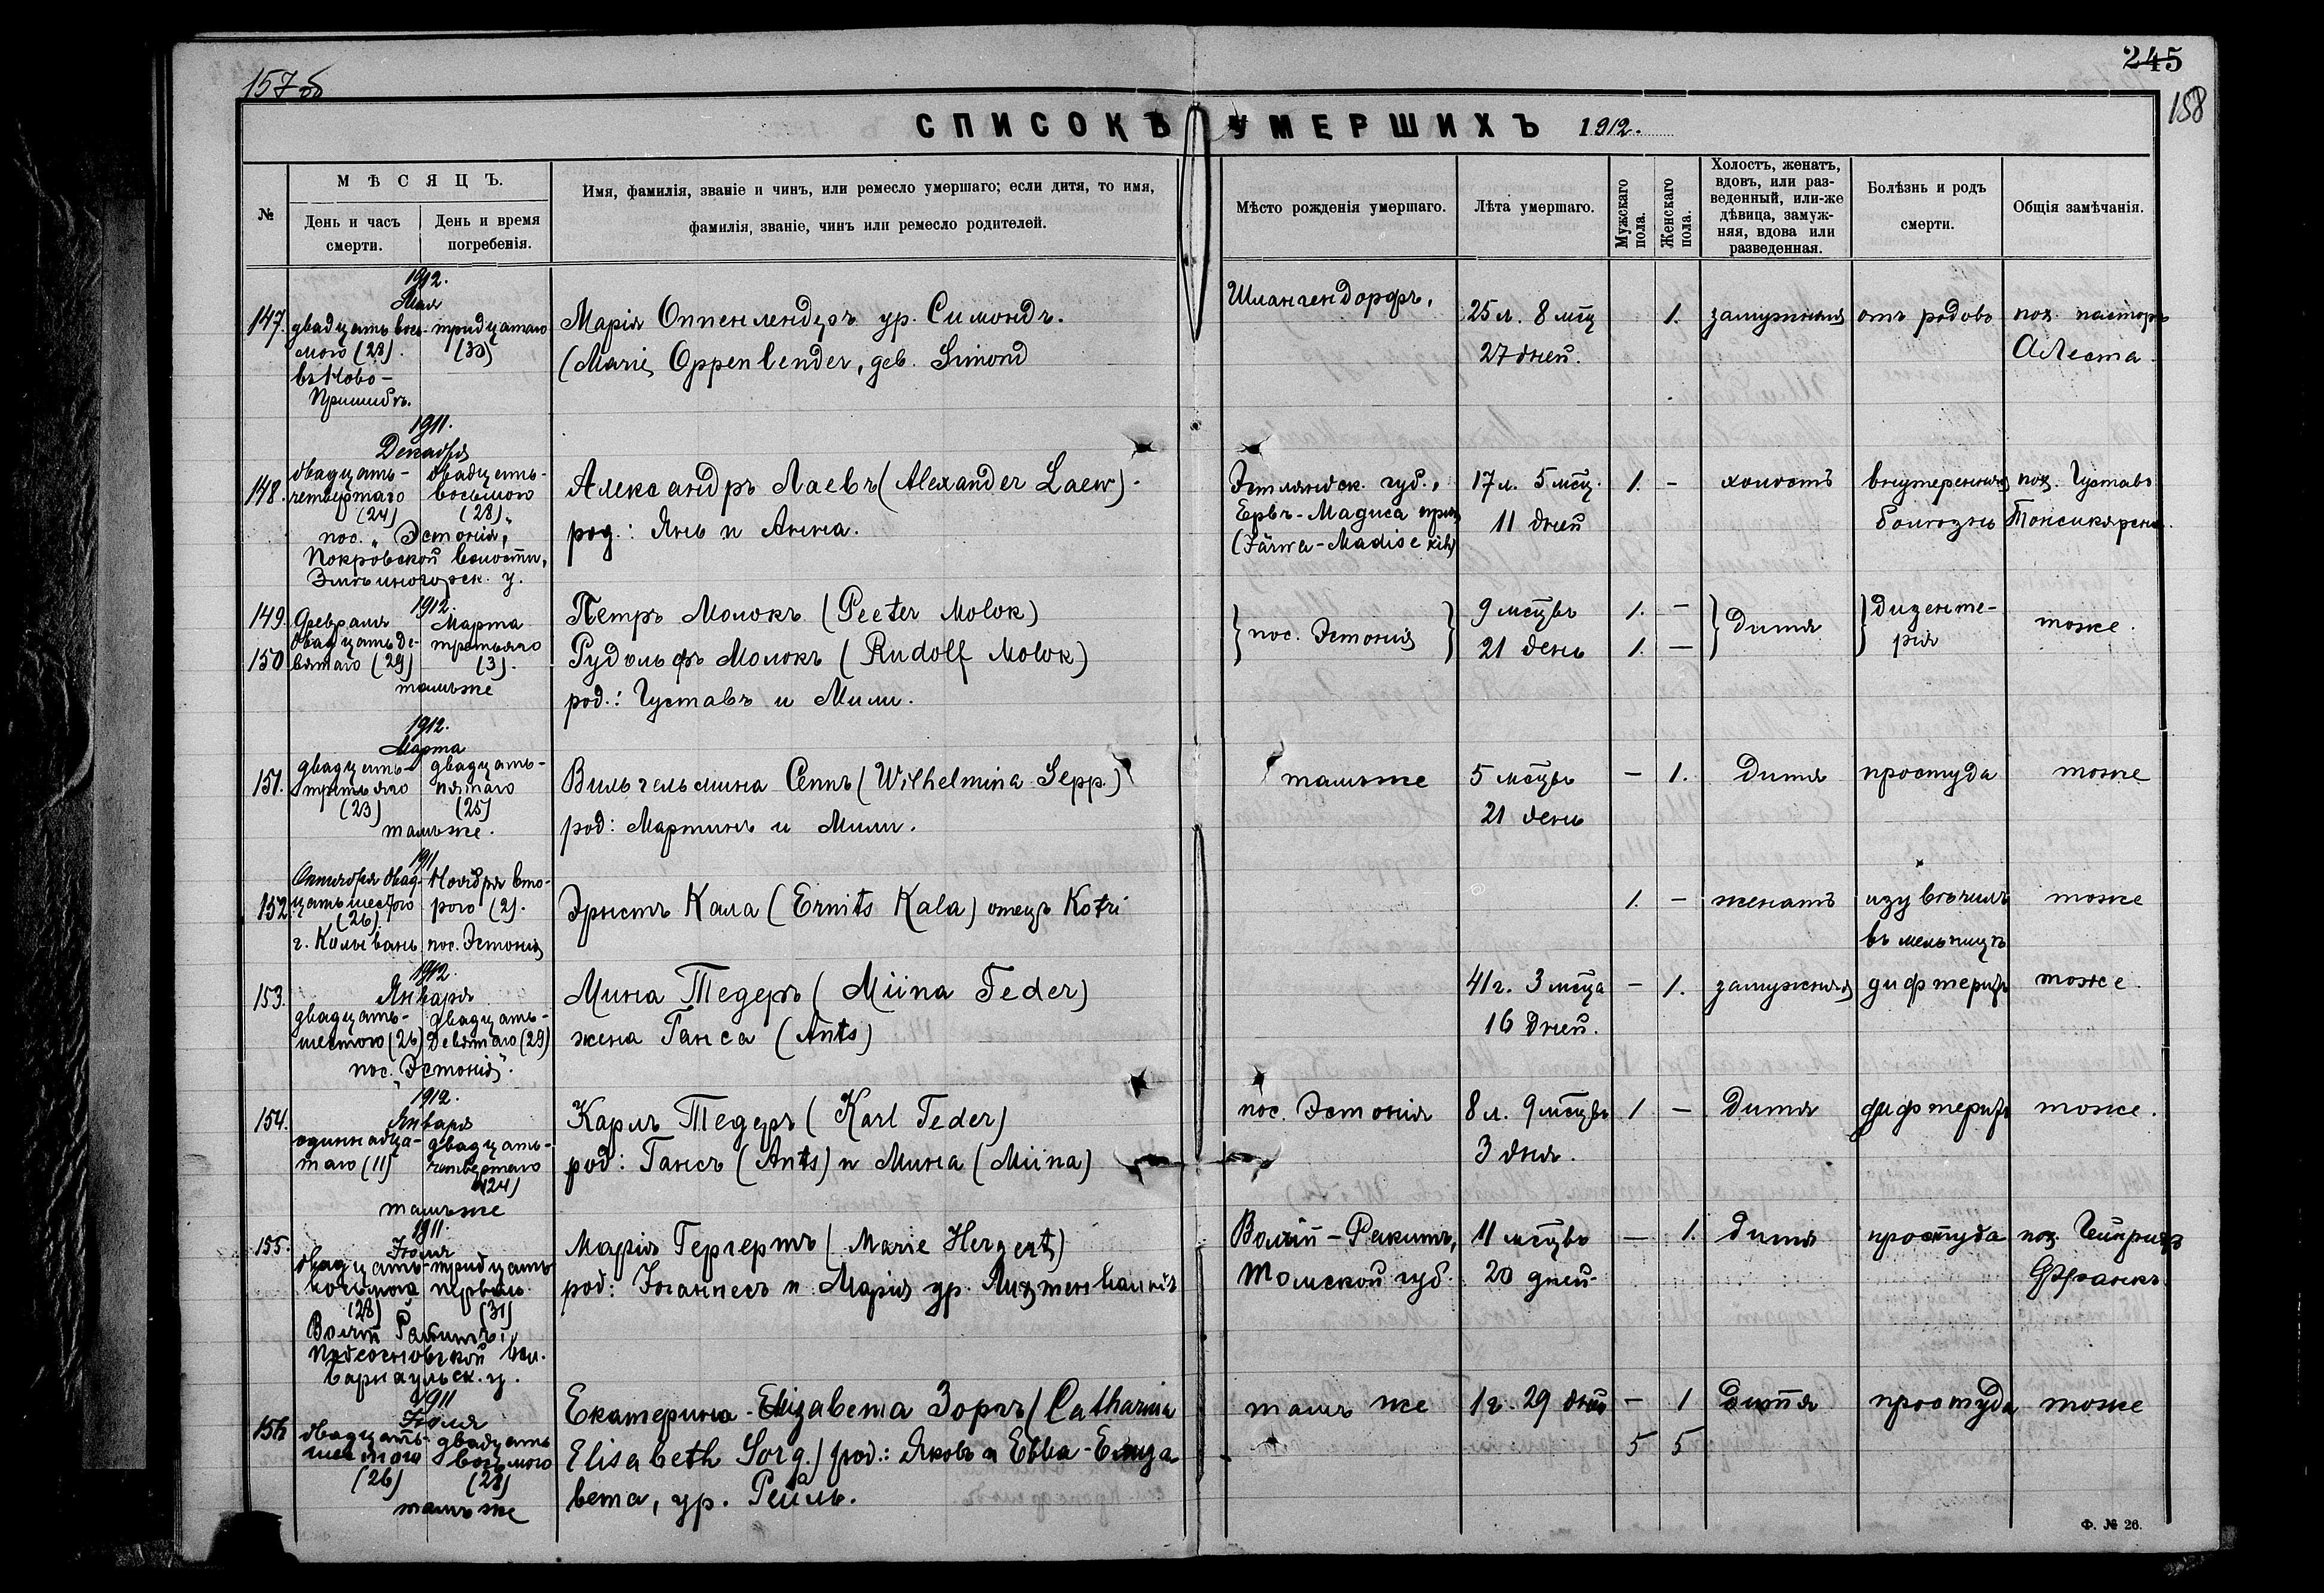 157об
245
158
СПИСОКЪ УМЕРШИХЪ 1912.
№
МѢСЯЦЪ.
День и часъ смерти.
День и время погребенія.
Имя, фамилія, званіе и чинъ, или ремесло умершаго; если дитя, то имя,
фамилія, званіе, чинъ или ремесло родителей.
Мѣсто рожденія умершаго.
Лѣта умершаго.
Мужскаго пола.
Женскаго пола.
Холостъ, женатъ,
вдовъ, или раз-
веденный, или-же
дѣвица, замуж-
няя, вдова или
разведенная.
Болѣзнь и родъ
смерти.
Общія замѣчанія.
1912.
Мая
147. двадцать вось- тридцатаго
мого (28). (30)
въ Ново-
Пришибъ.
Марія Оппенлендръ ур. Симондъ.
(Marie Oppenlender, geb. Simond
Шлангендорфъ,
25 л. 8 мсц 1. замужняя отъ родовъ поз. пасторъ
27 дней. А Леста
1911.
Декабря
148. двадцать- двадцать-
четвертаго восьмого
(24) (28)
пос. „Эстонія"
Покровской волости,
Змѣиногорск. у.
Александръ Лаевъ (Alexander Laew).
род.: Янъ и Анна.
Эстляндск. губ.,
Ервъ-Мадиса прих
(Järwa-Madise kih)
17 л. 5 мсц. 1. - холостъ внутренняя поз. Густавъ
11 дней болѣзнь
1912.
149. Февраля Марта
150. двадцать де- третьяго
вятаго (29) (3).
тамъже
Петръ Молокъ (Peeter Molok)
Рудольфъ Молокъ (Rudolf Molok)
род.: Густавъ и Мили.
пос. Эстонія
9 мсцвъ 1. -
21 день 1. -
Дитя
дизенте-
рія
тоже.
1912.
Марта
151. двадцать- двадцать-
третьяго пятаго
(23) (25)
тамъже.
Вильгельмина Сеппъ (Wilhelmina Sepp.)
род: Мартинъ и Мили.
тамъже 5 мсцвъ - 1. Дитя простуда тоже
21 день
1911
152. Октября двад- Ноября вто-
цать шестого рого (2).
(26).
г. Колывань пос. Эстонія
Эрнстъ Кала (Ernits Kala) отецъ Kotri
1. - женатъ изувѣченъ тоже
въ мельницѣ
1912.
153. Января
двадцать- двадцать-
шестого (26) девятаго (29)
пос. „Эстонія".
Мина Тедеръ (Miina Teder)
жена Ганса (Ants)
41 г. 3 мсца - 1. замужняя дифтеритъ тоже.
16 дней.
1912.
154. Января
одиннадца- двадцать-
таго (11) четвертаго
(24)
тамъже
Карлъ Тедеръ (Karl Teder)
род: Гансъ (Ants) и Мина (Miina)
пос. Эстонія 8 л. 9 мсцвъ 1 - Дитя дифтеритъ тоже.
3 дня.
1911.
155. Іюля
двадцать- тридцать
восьмого первымъ.
(28) (31)
Подсосновской вол.
Барнаульск. у.
Марія Гергертъ (Marie Hergert)
род: Іоаннесъ и Марія ур.
Томской губ.
11 мсцвъ - 1. дитя простуда поз. Гейнрихъ
20 дней. Франкъ.
1911
156 Іюля
двадцать- двадцать
шестого восьмого
(26) (28)
тамъ же
Екатерина-Елизабета Зоргъ (Catharina
Elisabeth Sorg.) род.: Яковъ и Евва-Елиза
вета, ур. Рейль.
тамъ же 1 г. 29 дней - 1 дитя простуда тоже
5 5
Ф. № 26.